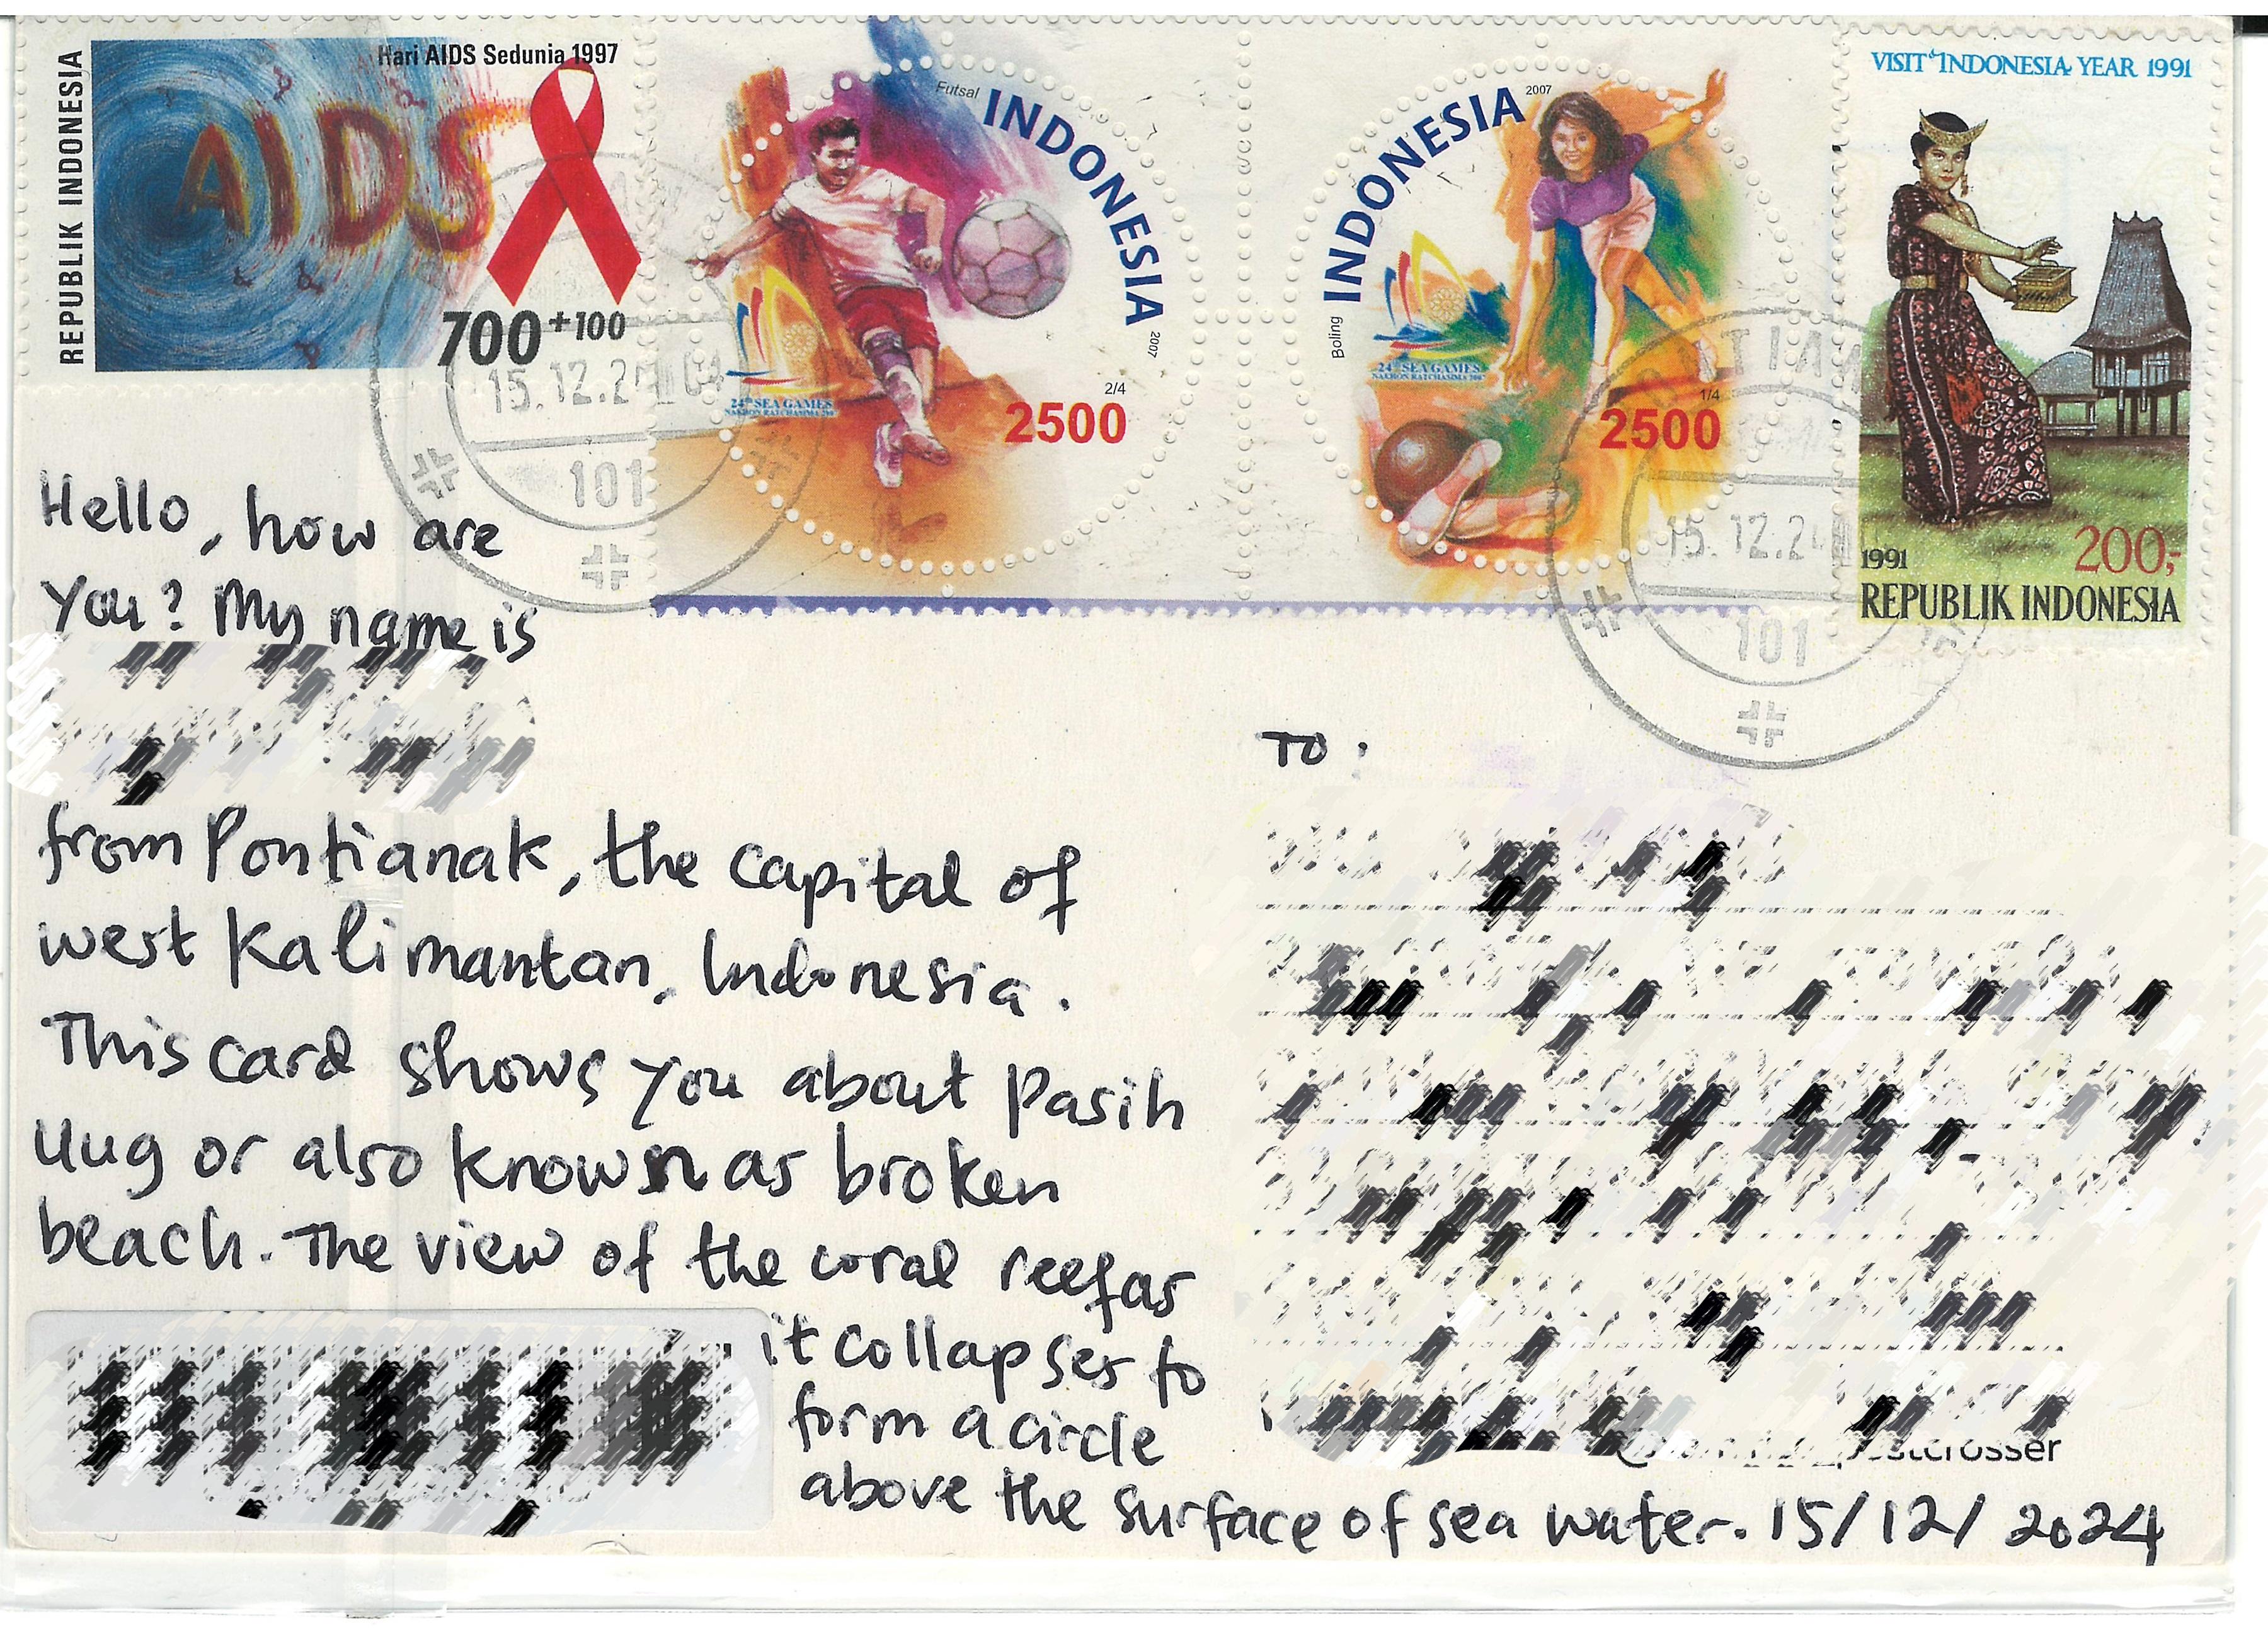 REPUBLIK INDONESIA
Hari AIDS Sedunia 1997
AIDS
700+100
Futsal INDONESIA 2007
24th SEA GAMES
NAKHON RATCHASIMA 200
2/4
2500
Boling INDONESIA 2007
24th SEA GAMES
NAKHON RATCHASIMA 200
1/4
2500
VISIT INDONESIA YEAR 1991
1991
200,-
REPUBLIK INDONESIA
15.12.2
101
15.12.2
101
Hello, how are
you? My name is
from Pontianak, the capital of
west Kalimantan, Indonesia.
This card shows you about Pasih
Uug or also known as broken
beach. The view of the coral reef as
it collapses to
form a circle
above the surface of sea water. 15/12/2024
To :